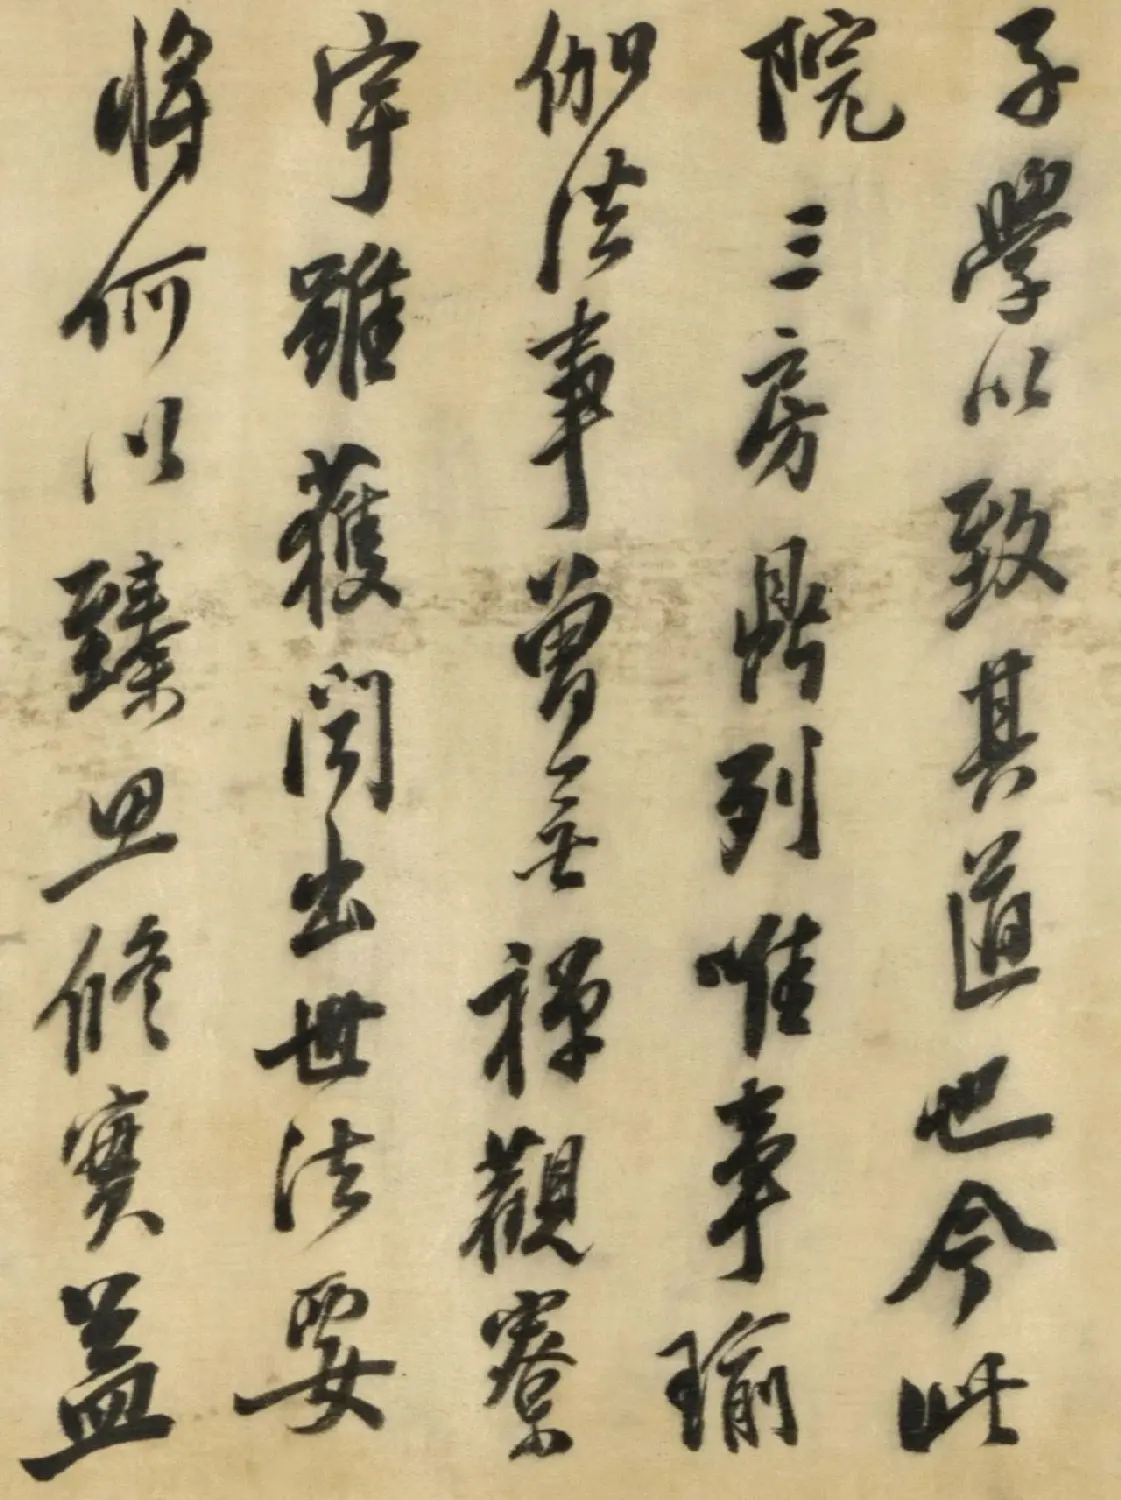 子學以致其道也今此
院三房鼎列唯事瑜
伽法事曾無禪觀寮
宇雖獲閱出世法要
將何以臻思修實益